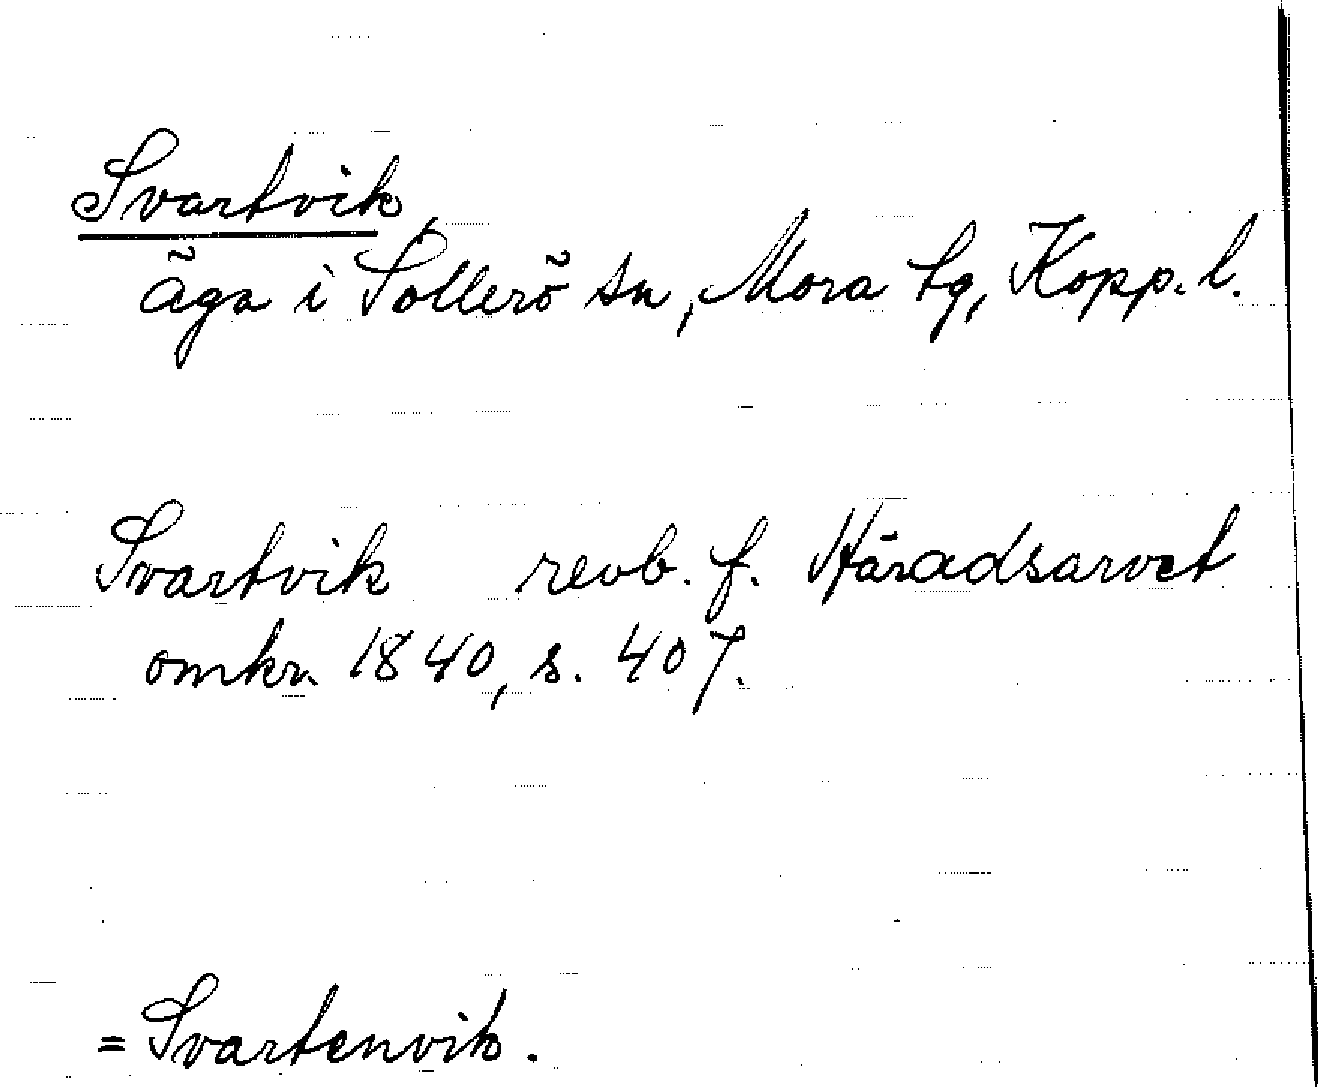 Svartvik,
äga i Sollerö sn, Mora tg, Kopp. l.
Svartvik revb. f. Häradsarvet
omkr. 1840, s. 407.
= Svartenvik.